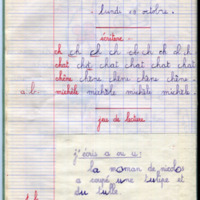 lundi 18 octobre.
écriture :
ch ch ch ch ch ch ch ch
chat chat chat chat chat
chêne chêne chêne chêne
michèle michèle michèle
jeu de lecture
j'écris a ou u :
la maman de nicolas
a coupé une tulipe et
du tulle.